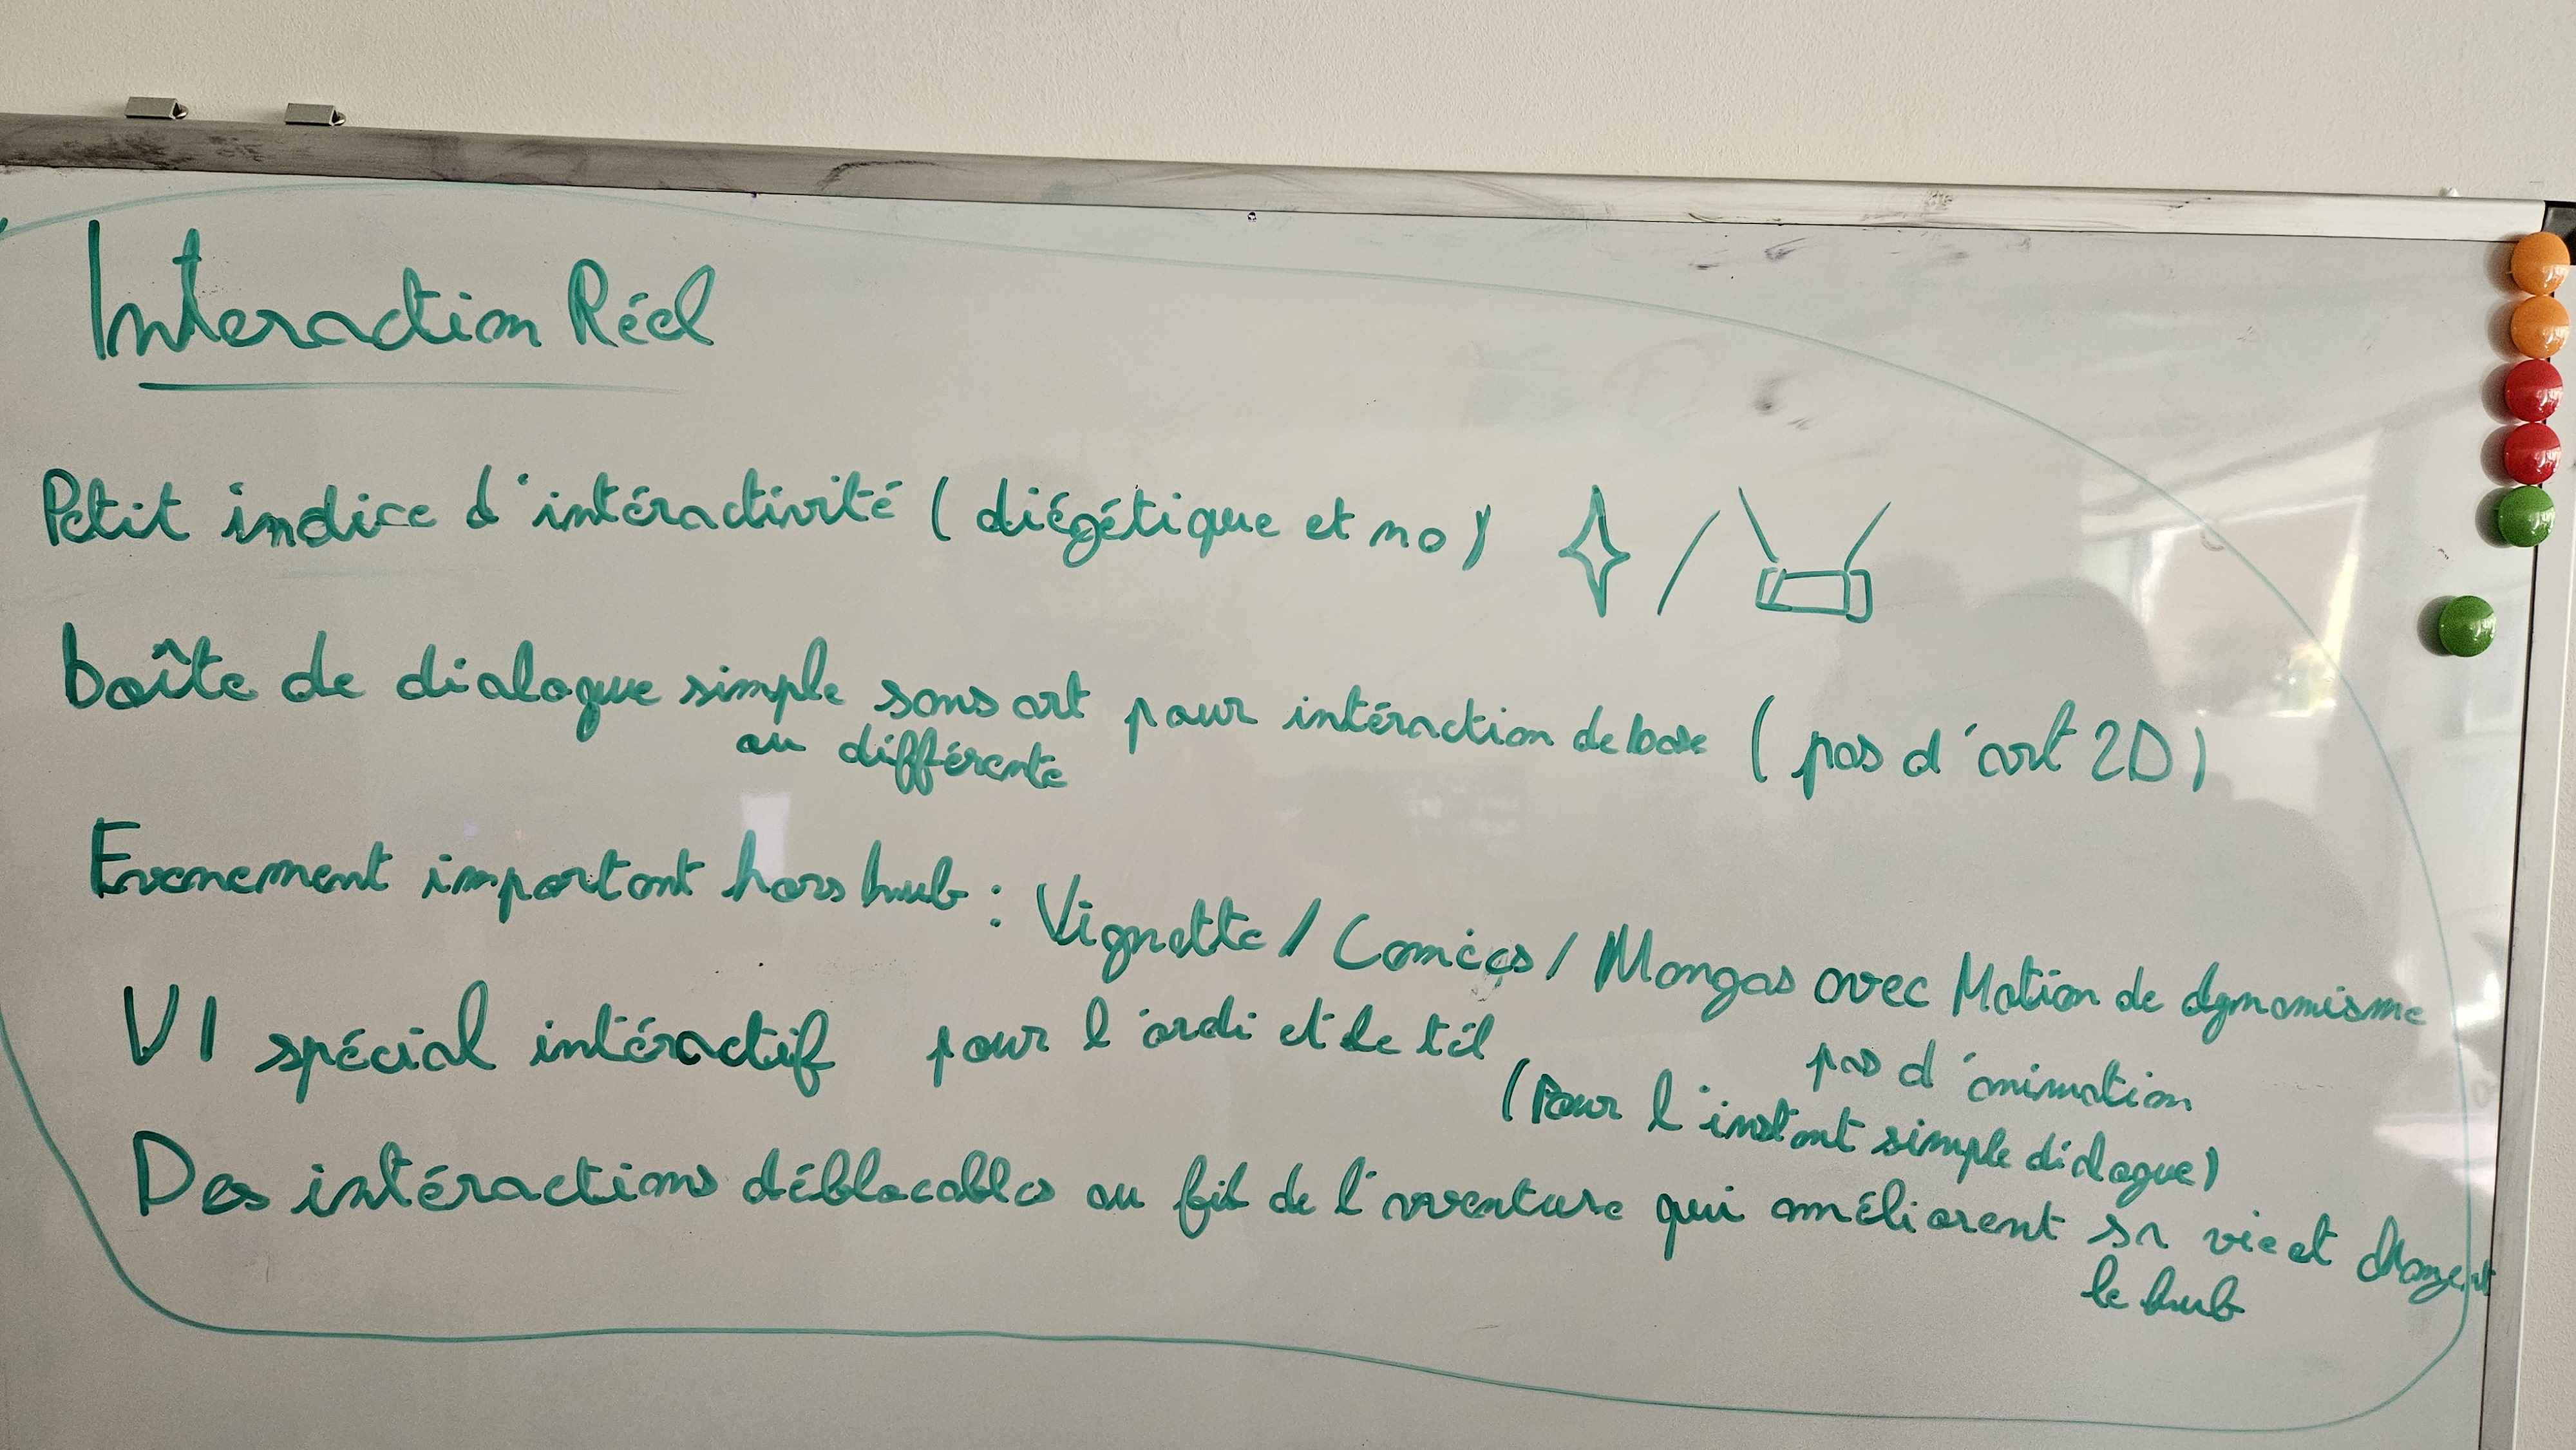 Interaction Réel
Petit indice d'intéractivité (diégétique et no)
boîte de dialogue simple sans art pour intéraction de base (pas d'art 2D)
ou différente
Evenement important hors hub : Vignette / Comics / Mangas avec Motion de dynamisme
pas d'animation
UI spécial intéractif pour l'ordi et le tél
(Pour l'instant simple dialogue)
Des intéractions déblocables au fil de l'aventure qui améliorent sa vie et changent
le hub